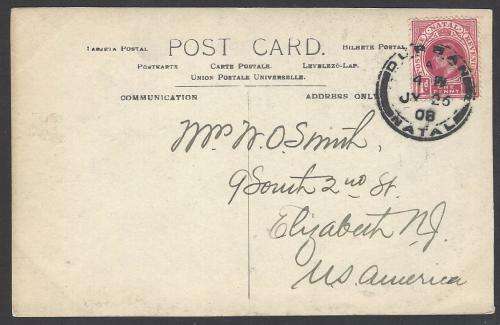 TARJETA POSTAL POST CARD. BILHETE POSTAL
POSTKARTE CARTE POSTALE. LEVELEZÖ-LAP.
UNION POSTALE UNIVERSELLE.
COMMUNICATION
ADDRESS ONLY
NATAL
DURBAN
JY 25
08
NATAL
Mrs W. O. Smith,
9 South 2nd St.
Elizabeth N.J.
U.S. America